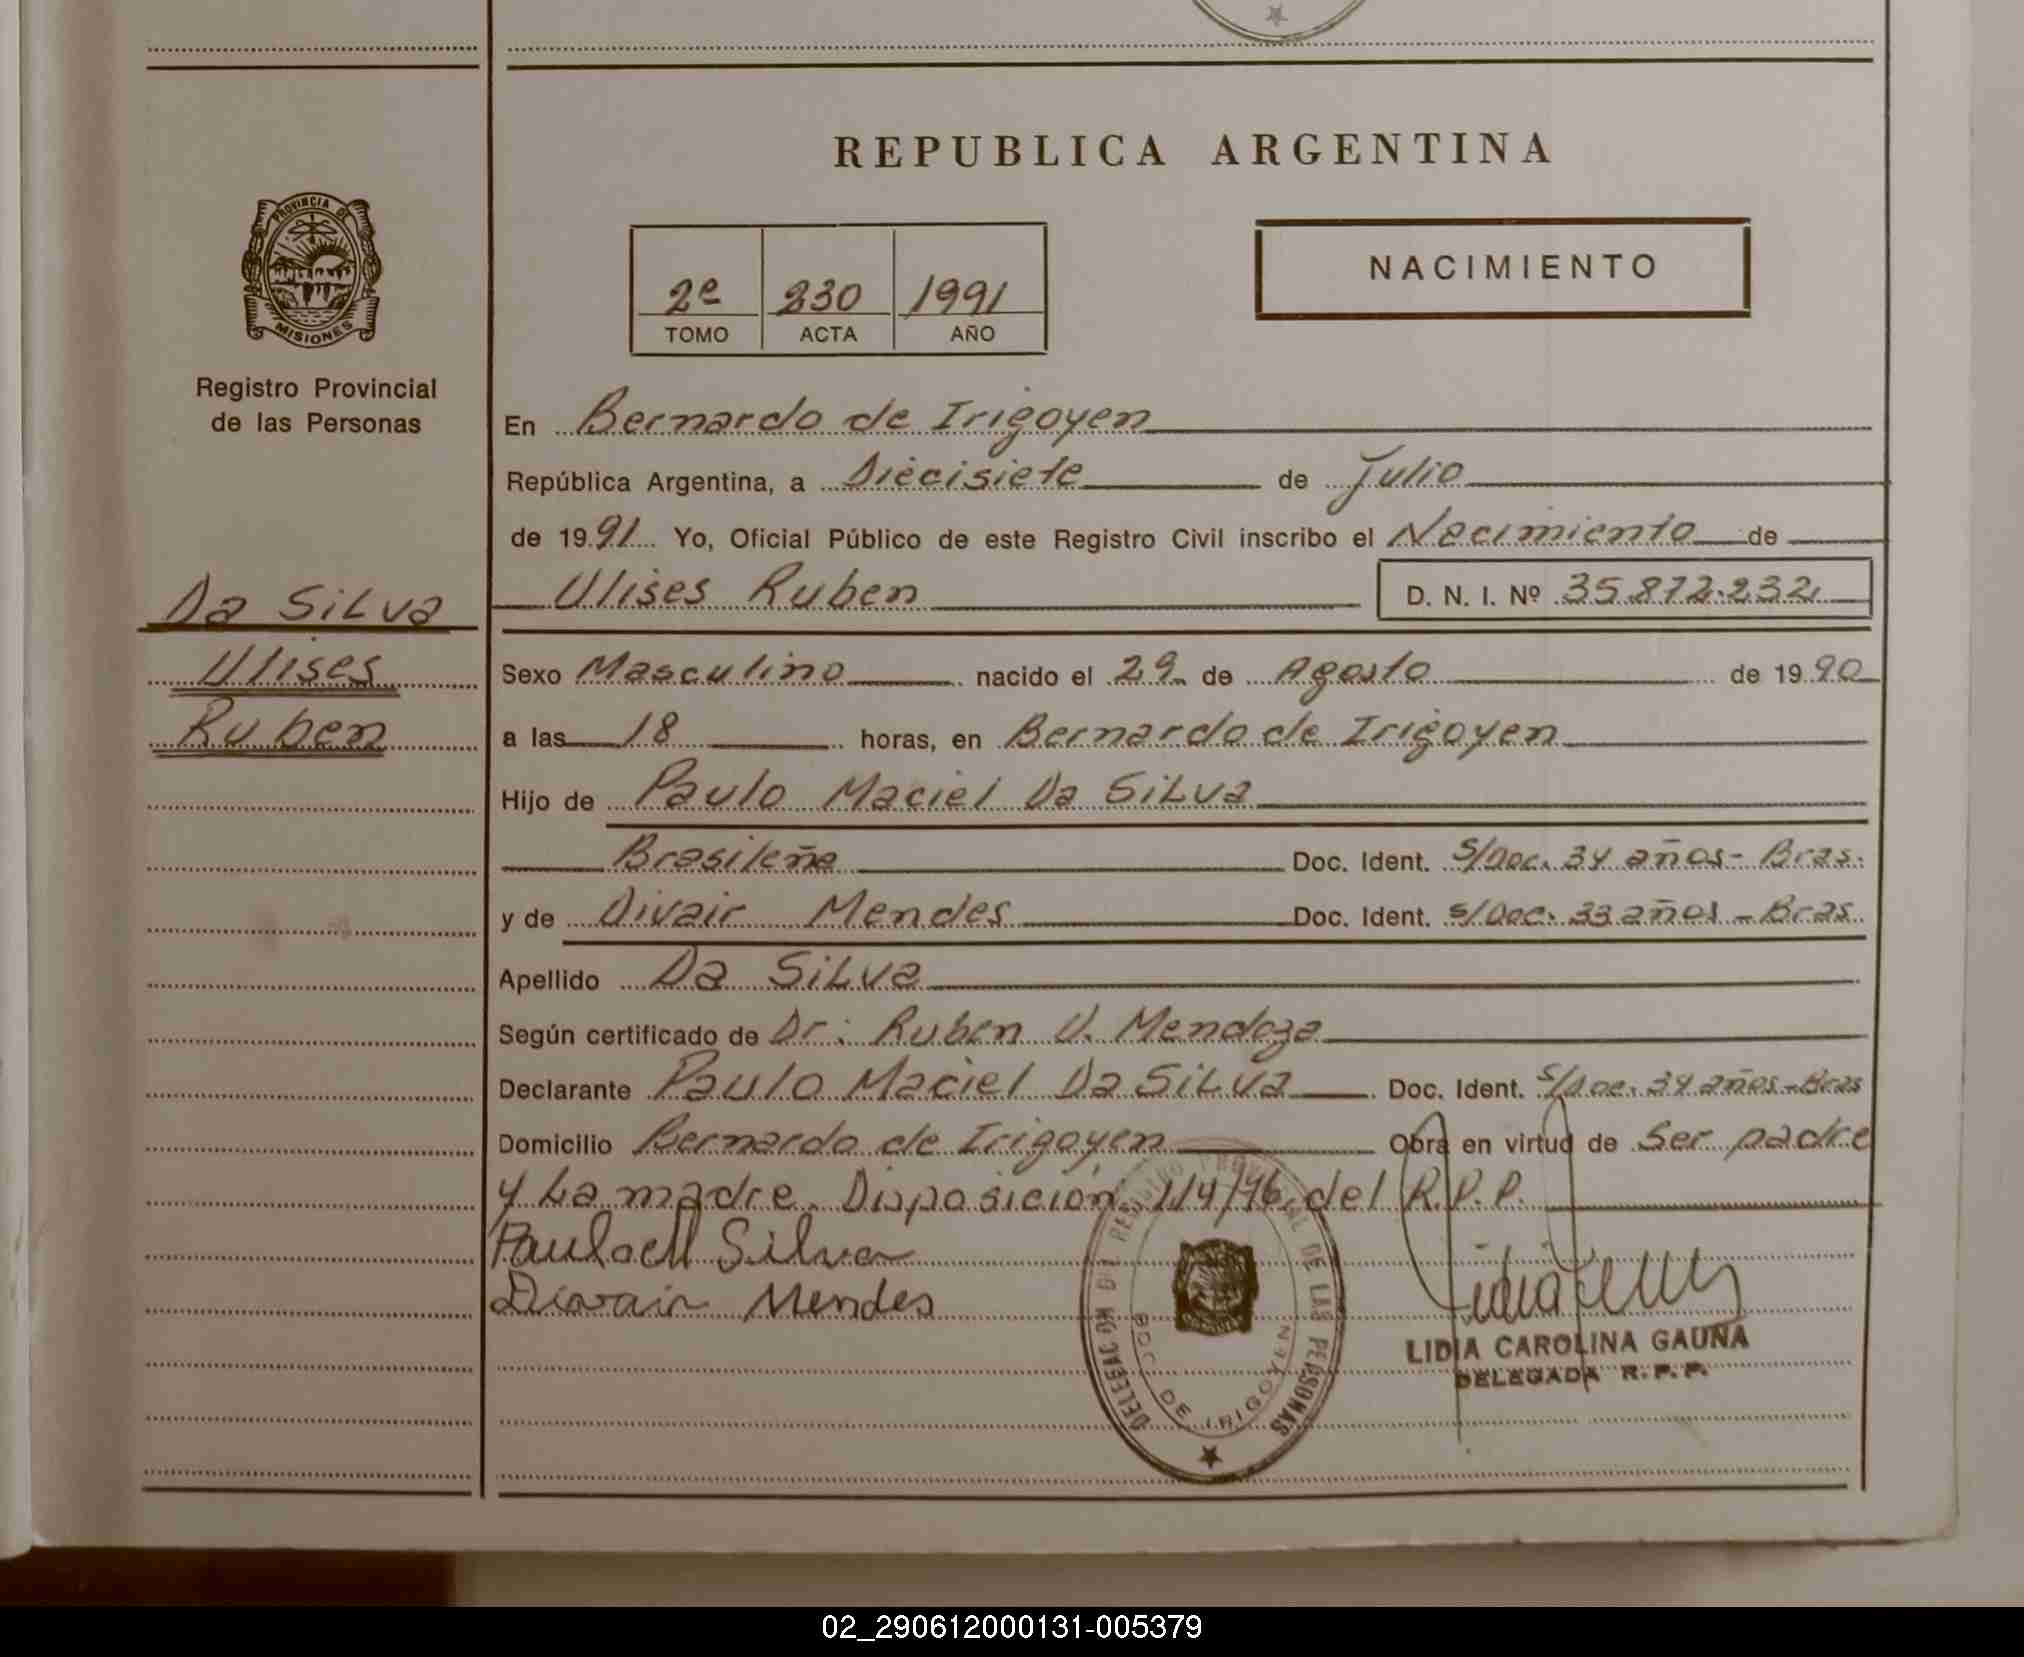 REPUBLICA ARGENTINA
PROVINCIA DE
MISIONES
Registro Provincial
de las Personas
2º 230 1991
TOMO ACTA AÑO
NACIMIENTO
En Bernardo de Irigoyen
República Argentina, a Diecisiete de Julio
de 1991 Yo, Oficial Público de este Registro Civil inscribo el Nacimiento de
Ulises Ruben D. N. I. Nº 35.872.232
Da Silva
Ulises
Ruben
Sexo Masculino nacido el 29 de Agosto de 1990
a las 18 horas, en Bernardo de Irigoyen
Hijo de Paulo Maciel Da Silva
Brasileña Doc. Ident. S/Doc. 34 años - Bras.
y de Divair Mendes Doc. Ident. S/Doc. 33 años - Bras.
Apellido Da Silva
Según certificado de Dr: Ruben U. Mendoza
Declarante Paulo Maciel Da Silva Doc. Ident. S/Doc. 34 años - Bras
Domicilio Bernardo de Irigoyen Obra en virtud de Ser padre
y La madre. Disposición 114/76 del R.P.P.
Paulo M Silva
Divair Mendes
DELEGACION DEL REGISTRO PROVINCIAL DE LAS PERSONAS
BDO. DE IRIGOYEN
LIDIA CAROLINA GAUNA
DELEGADA R. P. P.
02_290612000131-005379